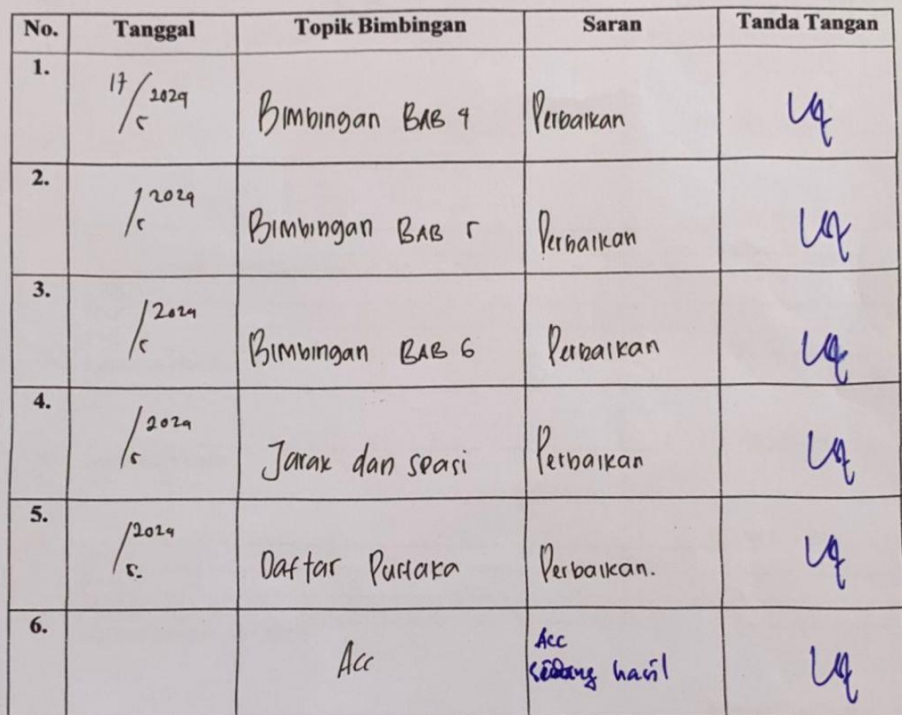 No. Tanggal Topik Bimbingan Saran Tanda Tangan
1. 17/5 2024 Bimbingan BAB 4 Perbaikan
2. /5 2024 Bimbingan BAB 5 Perbaikan
3. /5 2024 Bimbingan BAB 6 Perbaikan
4. /5 2024 Jarak dan spasi Perbaikan
5. /5 2024 Daftar Pustaka Perbaikan.
6. Acc Acc
sidang hasil